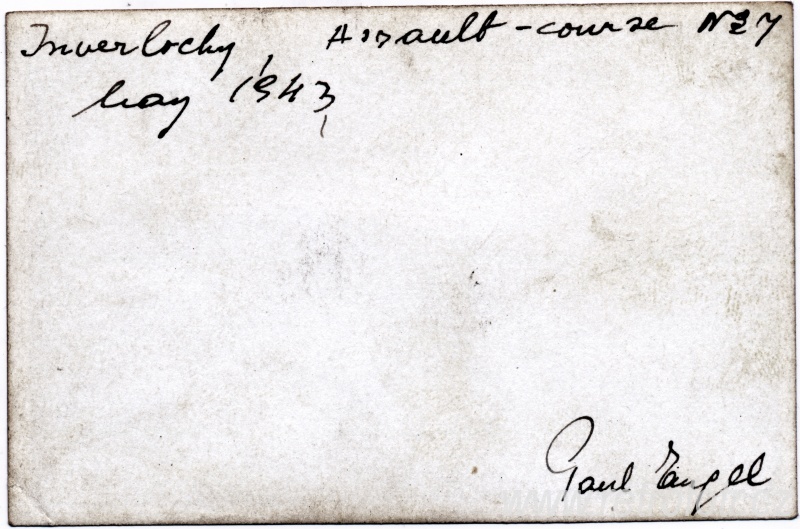 Inverlochy, Assault-course Nº 7
May 1943,
Paul Engel